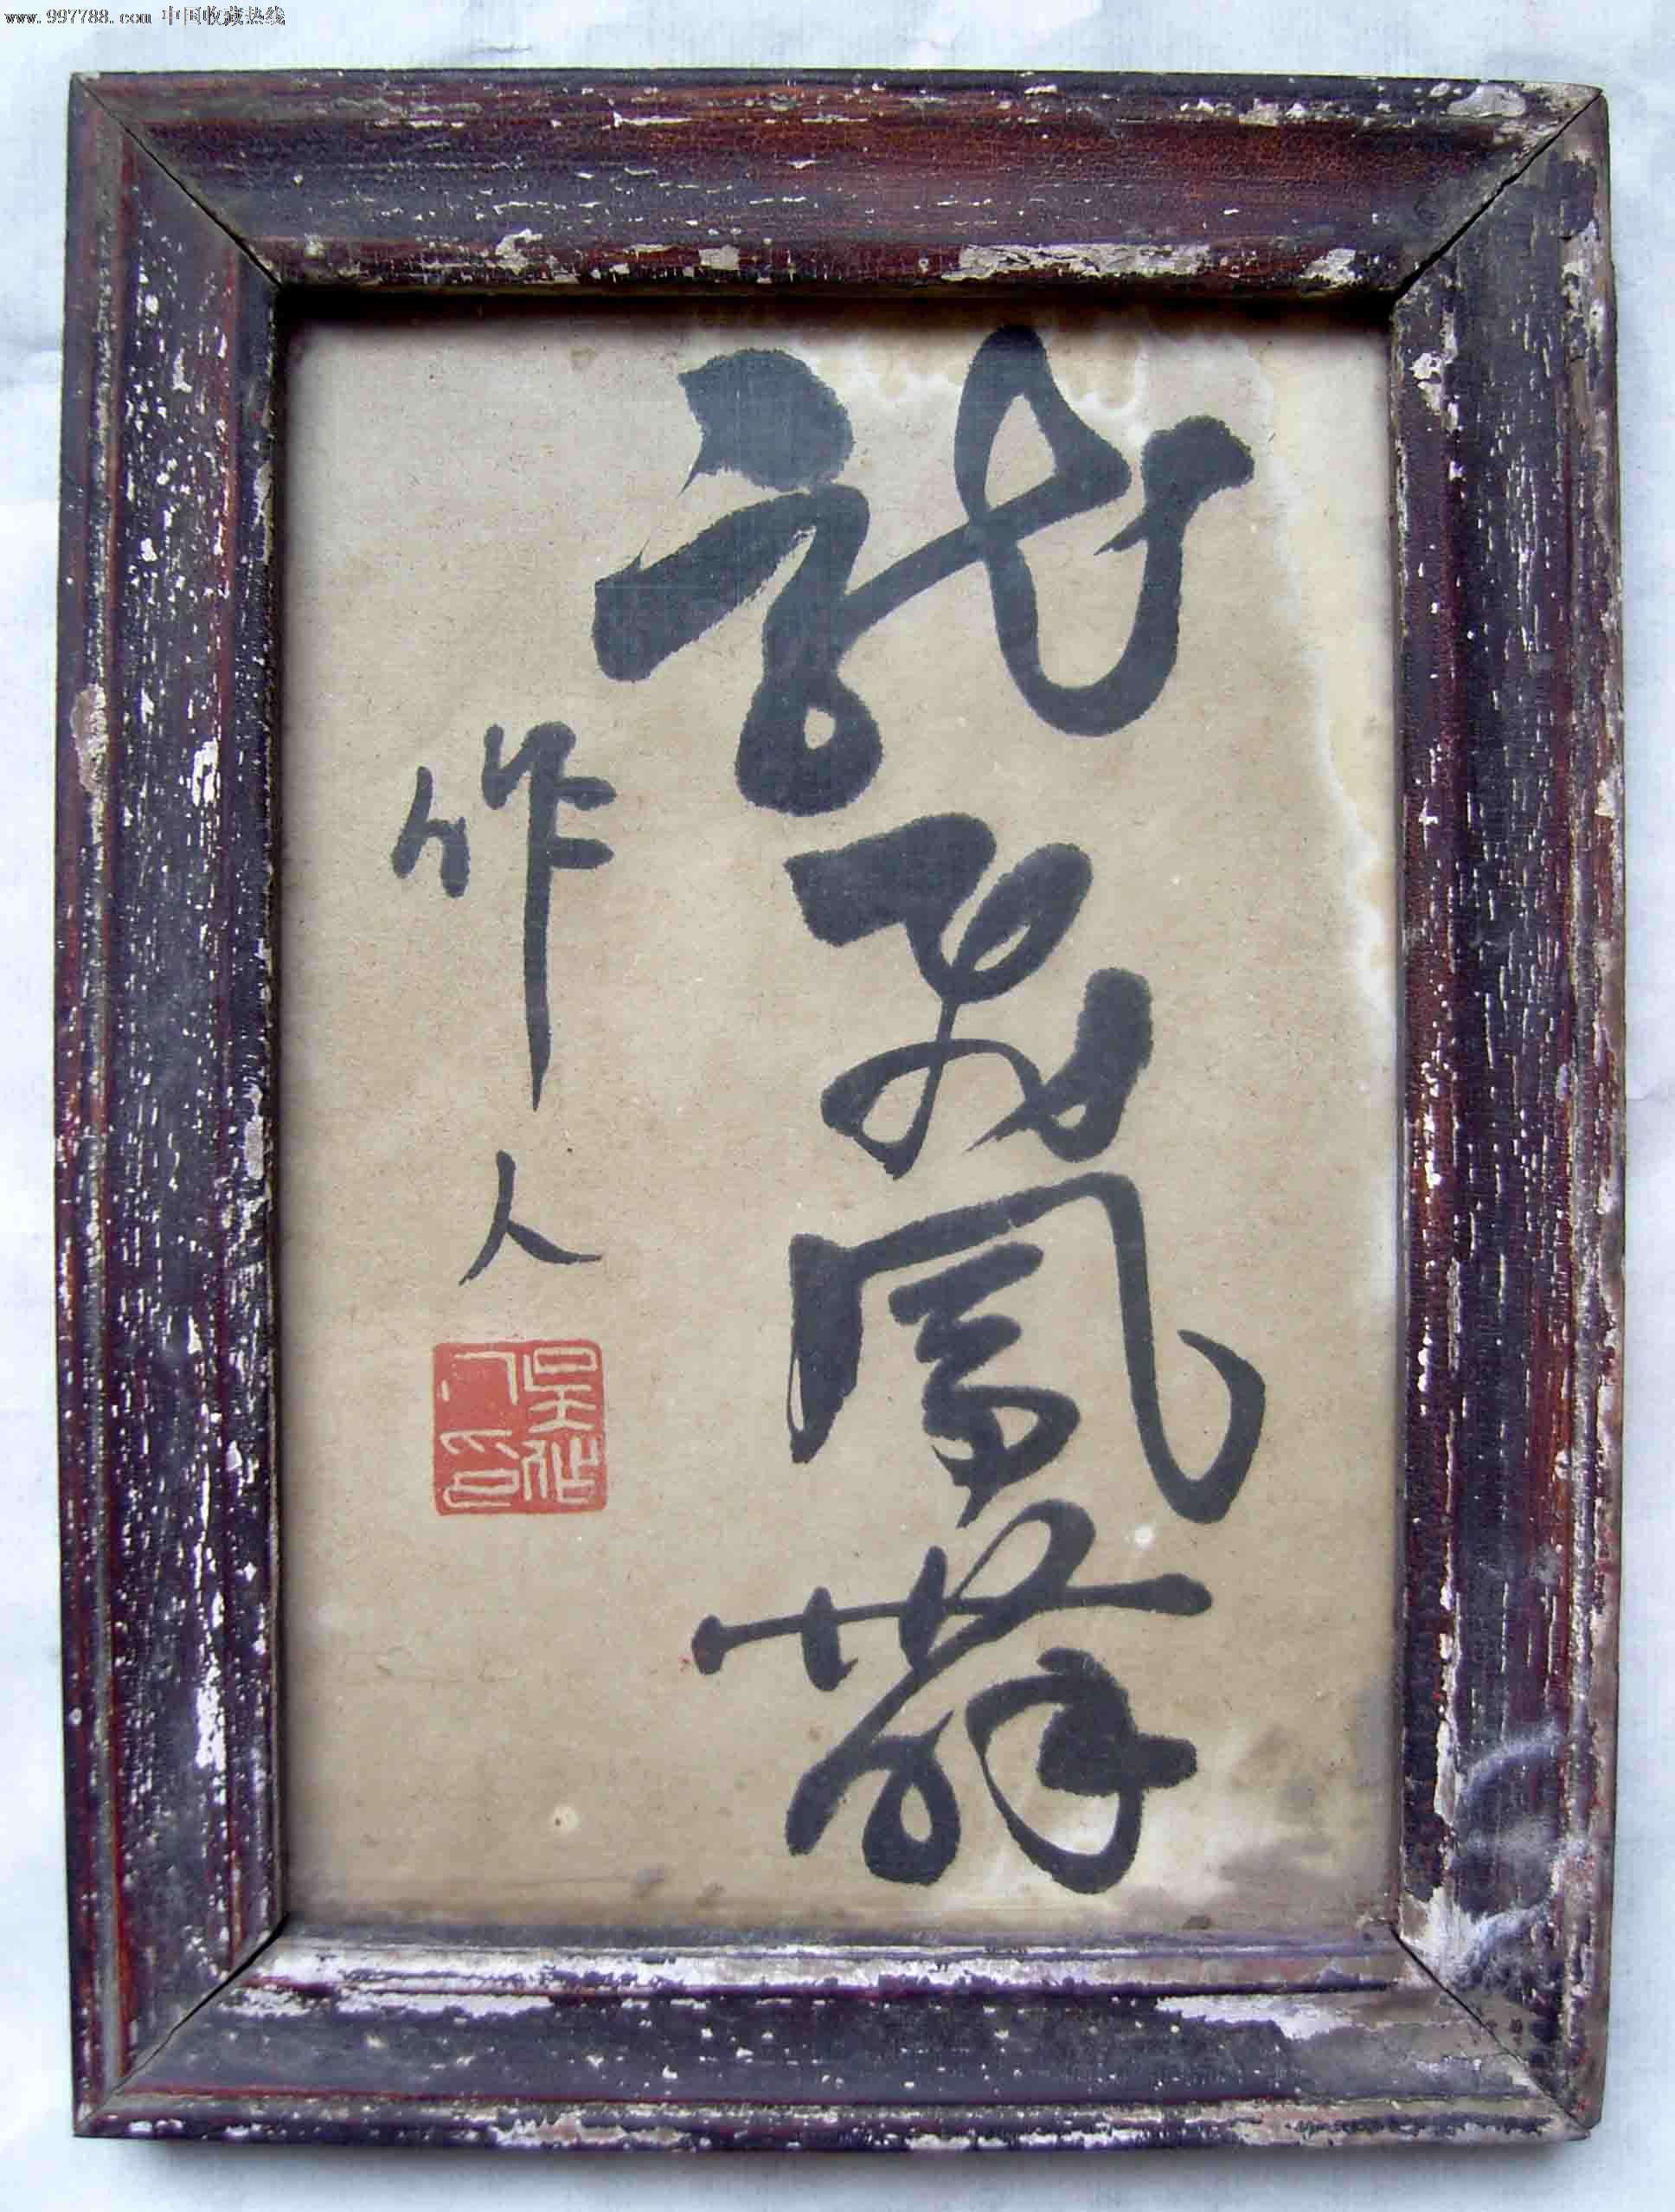 www.997788.com 中国收藏热线
龍飛鳳舞
作人
吴作人印